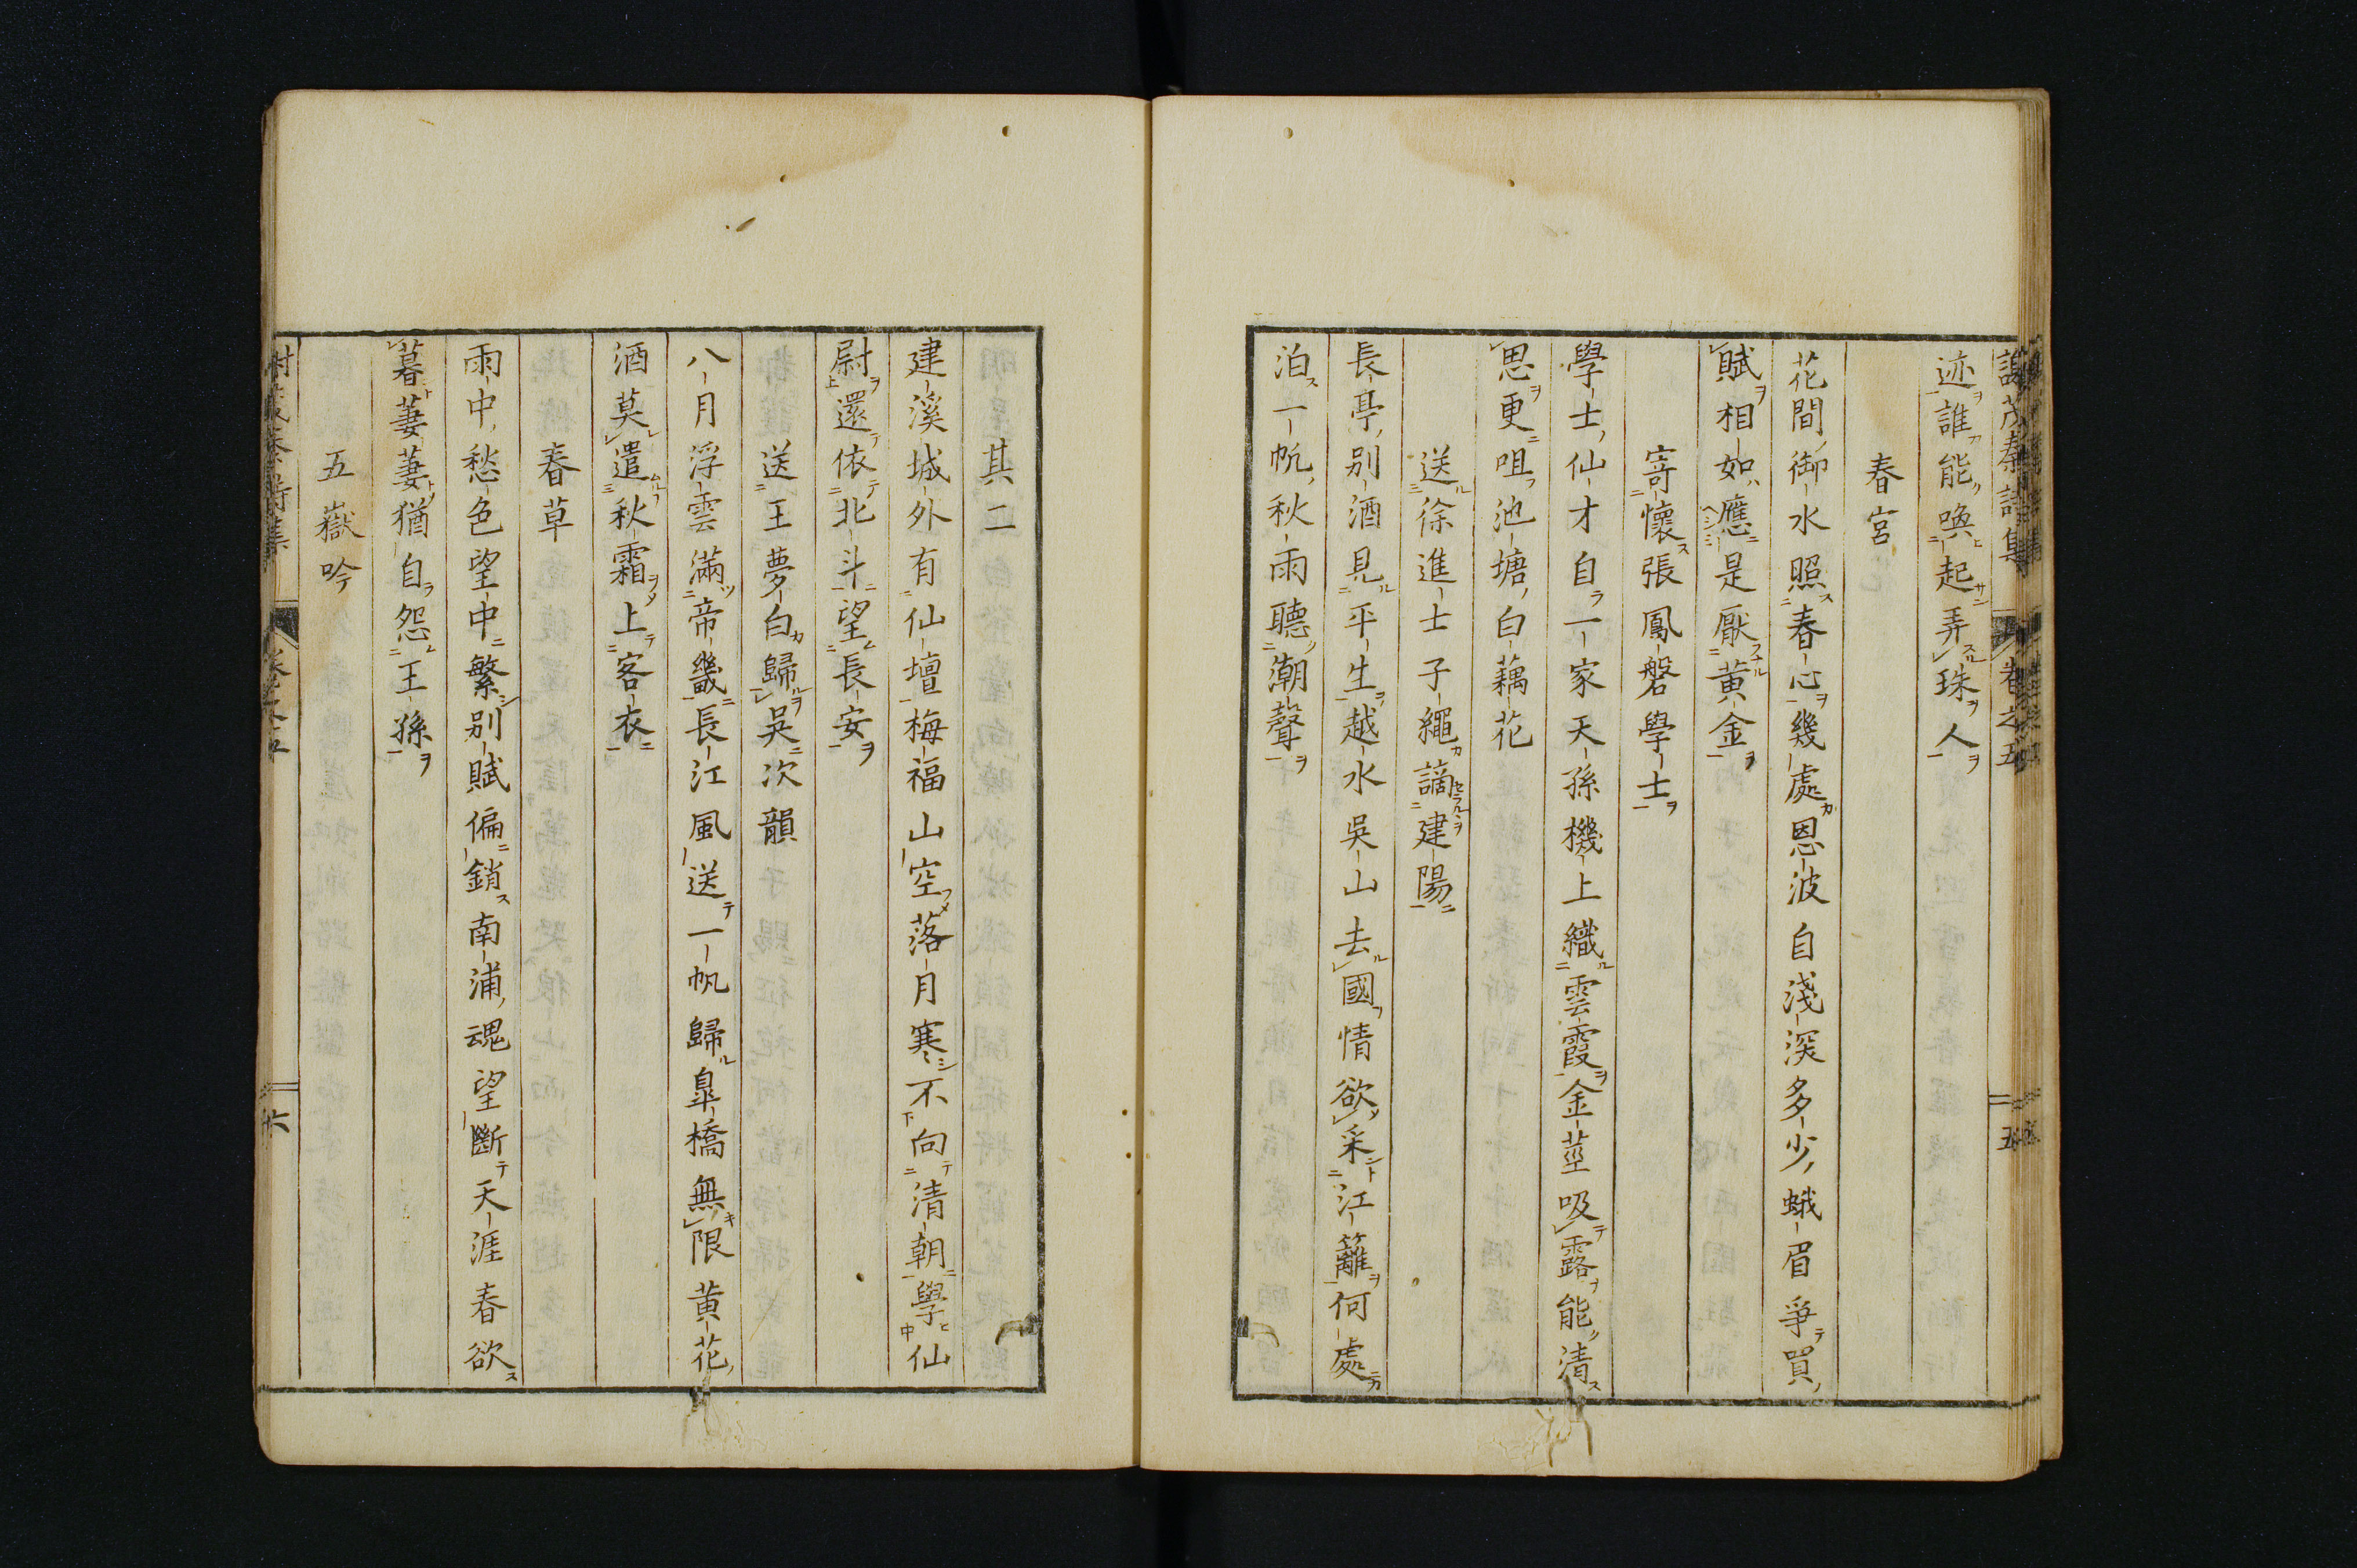 謝茂秦詩集 卷之五 五
迹誰能喚起弄珠人
春宮
花間御水照春心幾處恩波自淺深多少蛾眉爭買
賦相如應是厭黃金
寄懷張鳳磐學士
學士仙才自一家天孫機上織雲霞金莖吸露能清
思更咀池塘白藕花
送徐進士子繩謫建陽
長亭別酒見平生越水吳山去國情欲采江蘺何處
泊一帆秋雨聽潮聲
其二
建溪城外有仙壇梅福山空落月寒不向清朝學仙
尉還依北斗望長安
送王夢白歸吳次韻
八月浮雲滿帝畿長江風送一帆歸皐橋無限黃花
酒莫遣秋霜上客衣
春草
雨中愁色望中繁別賦偏銷南浦魂望斷天涯春欲
暮萋萋猶自怨王孫
五嶽吟
謝茂秦詩集 卷之五 六